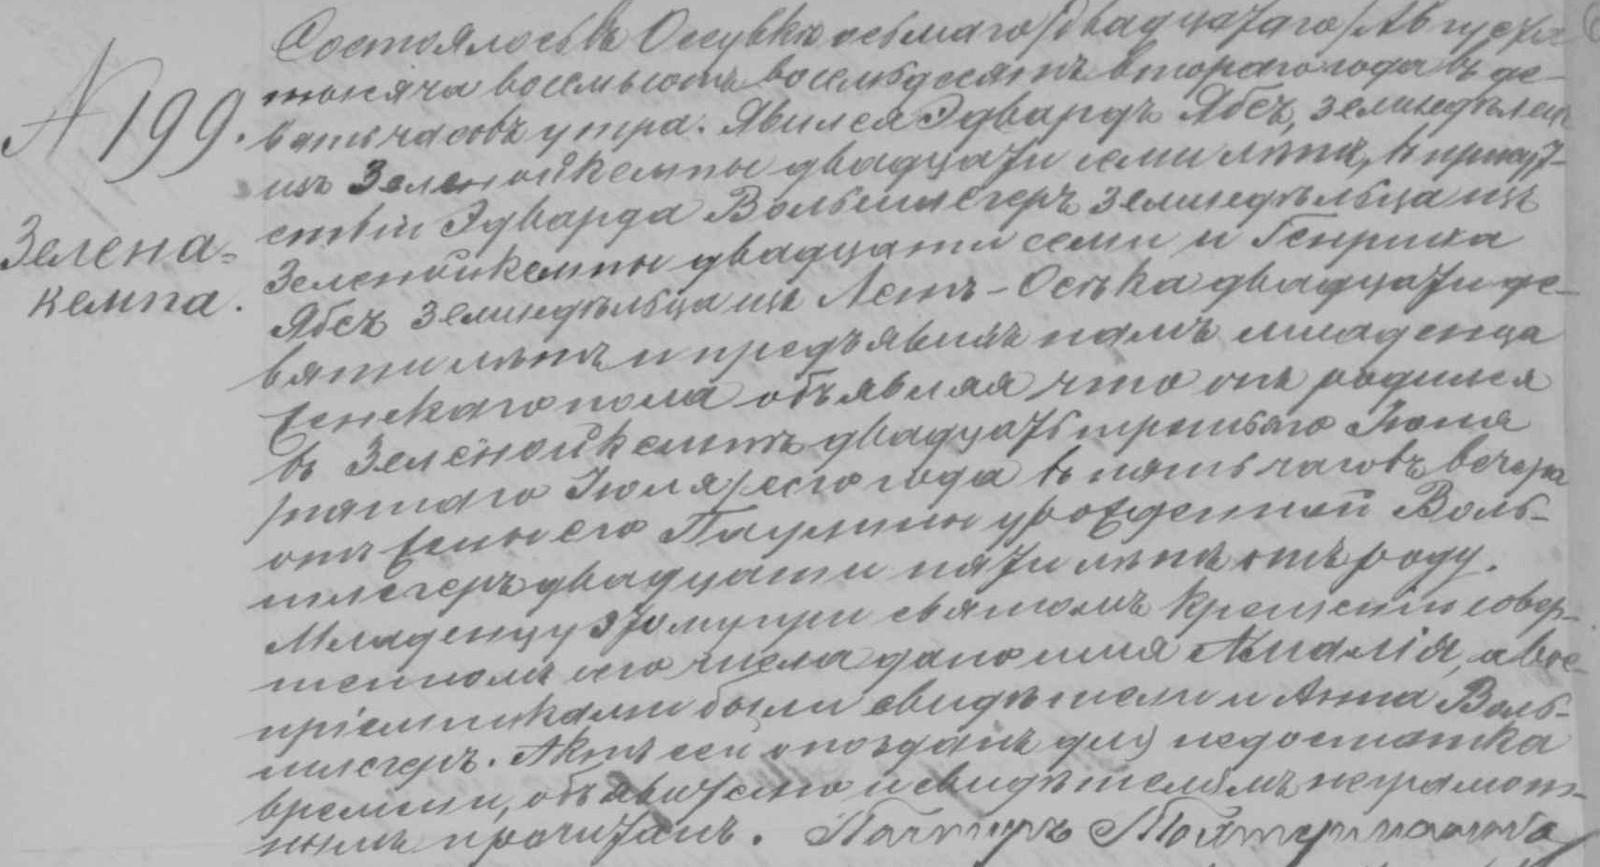 № 199.
Зелена-
кемпа.
Состоялось въ Осувкѣ осьмаго /двадцатаго/ Августа
тысяча восемьсотъ восемьдесятъ втораго года въ де-
вять часовъ утра. Явился Эдвардъ Ябсъ, земледѣлецъ
изъ Зеленойкемпы двадцати семи лѣтъ, въ присут-
ствіи Эдварда Вольшлегеръ земледѣльца изъ
Зеленойкемпы двадцати семи и Генриха
Ябсъ земледѣльца изъ Лентъ-Осѣка двадцати де-
вяти лѣтъ и предъявилъ намъ младенца
женскаго пола объявляя что онъ родился
въ Зеленойкемпѣ двадцать третьяго Іюня
/пятаго Іюля/ сего года въ пять часовъ вечера
отъ жены его Паулины урожденной Воль-
шлегеръ двадцати пяти лѣтъ отъ роду.
Младенцу этому при святомъ крещеніи совер-
шенномъ сего числа дано имя Амалія, а вос-
пріемниками были свидѣтели и Анна Воль-
шлегеръ. Актъ сей опозданъ для недостатка
времени, объявителю и свидѣтелямъ неграмот-
нымъ прочитанъ. Пасторъ